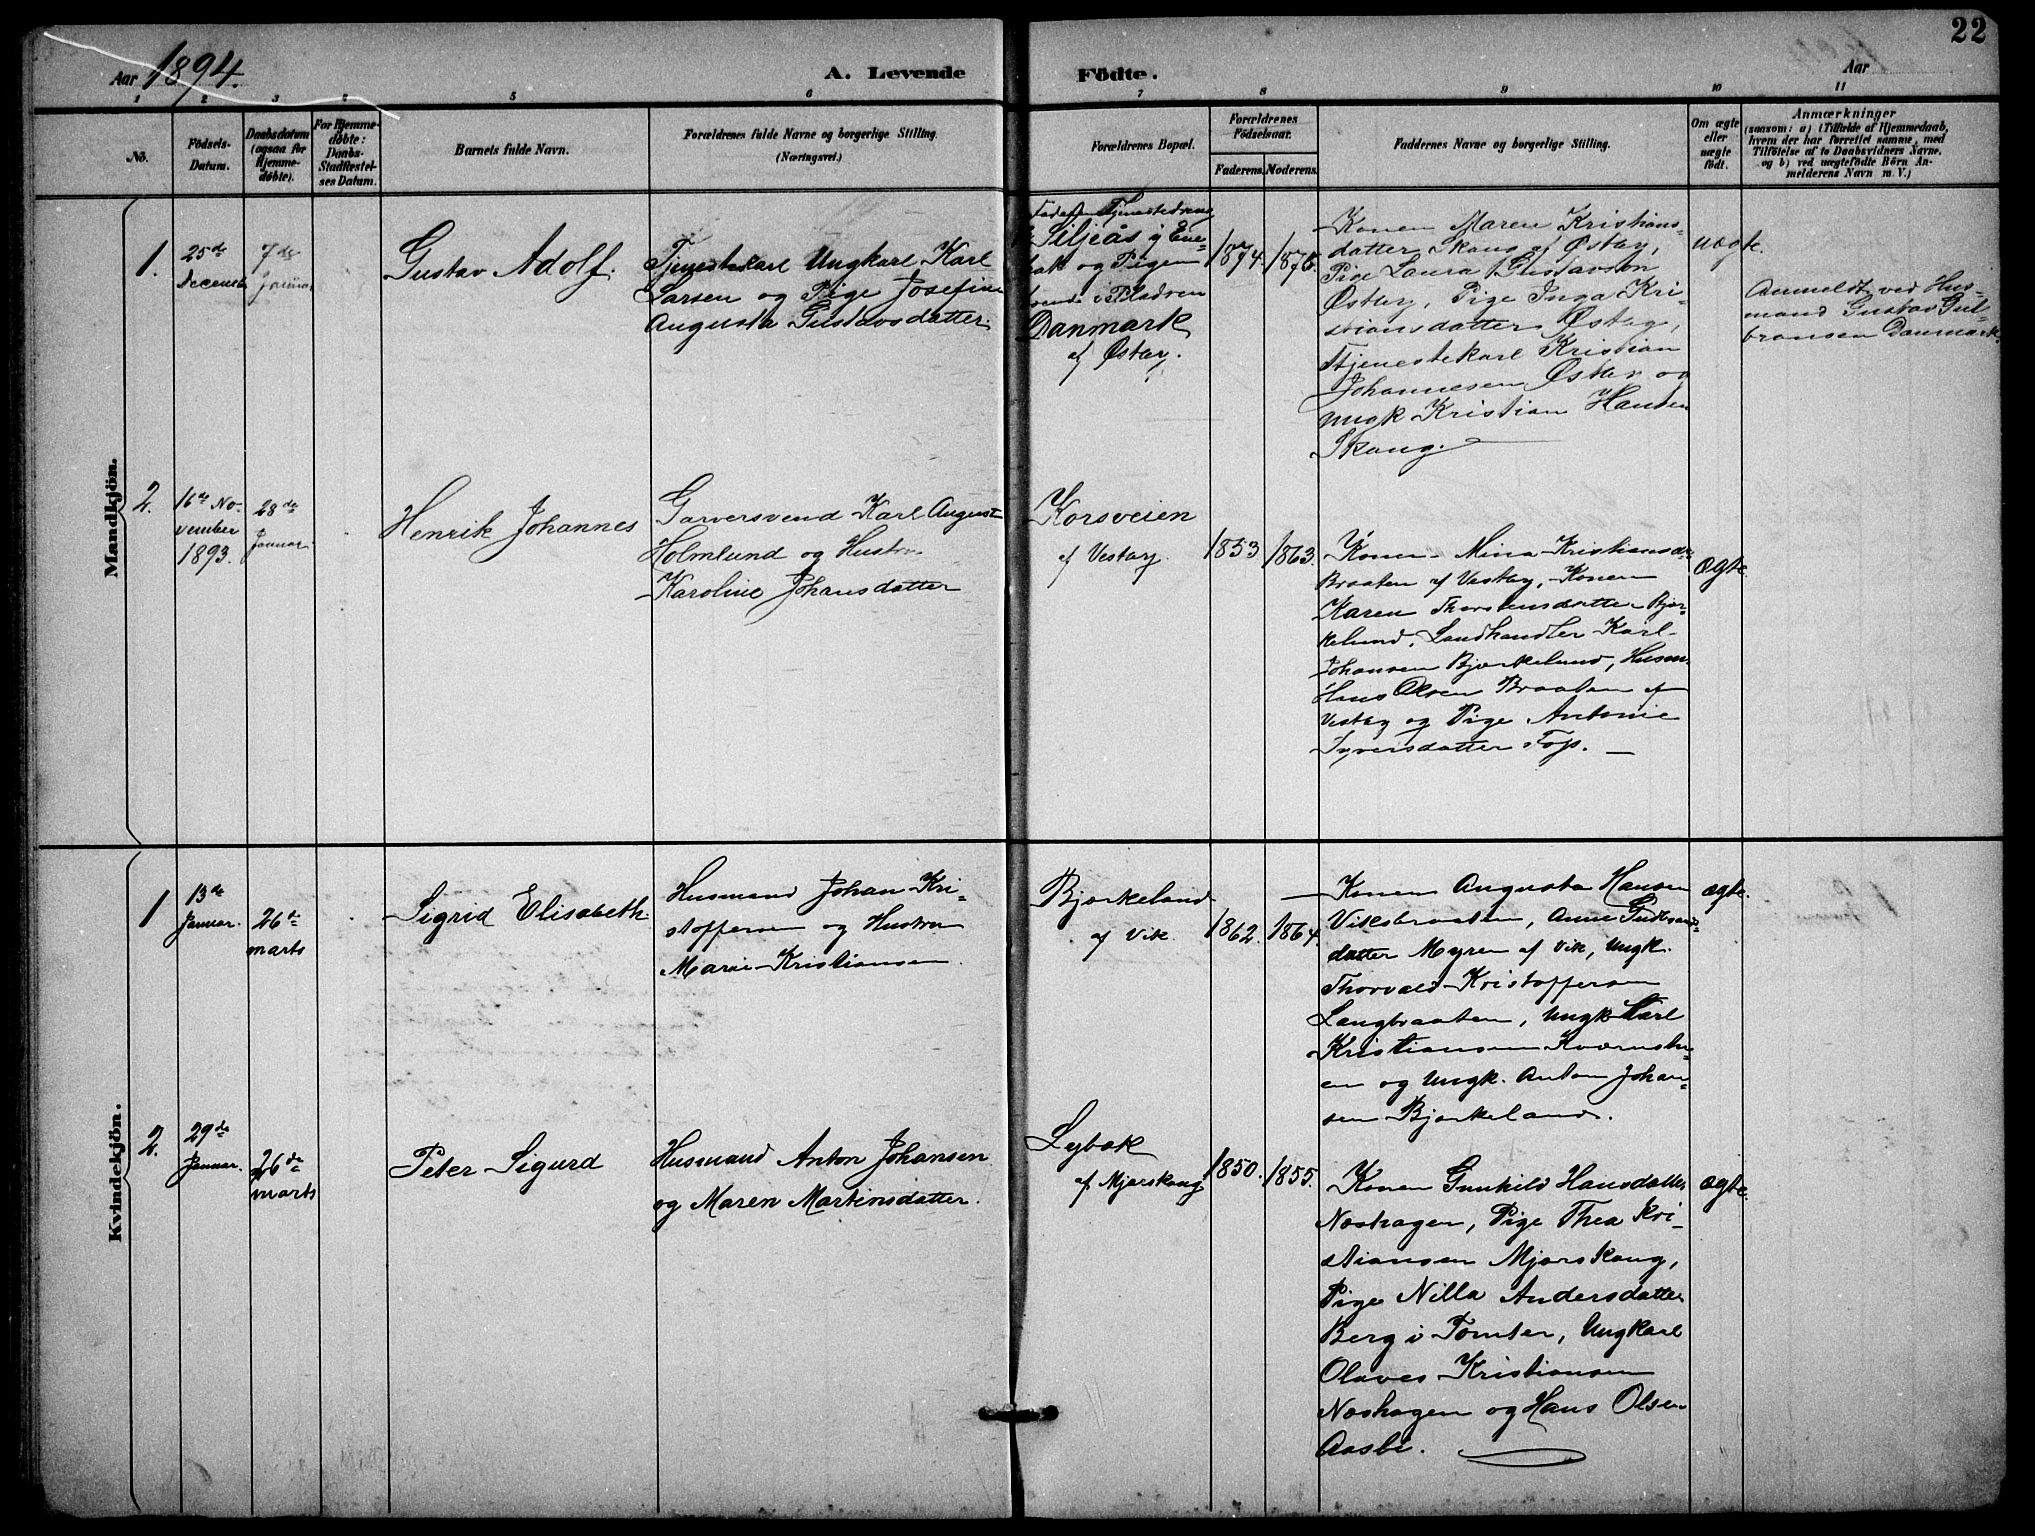 22
Aar 1894.
A. Levende Födte.
Aar
1 2 3 4 5 6 7 8 9 10 11
No.
Födsels-
Datum.
Daabsdatum
(ogsaa for
Hjemme-
døbte).
For Hjemme-
døbte:
Daabs-
Stadfæstel-
ses Datum.
Barnets fulde Navn.
Forældrenes fulde Navne og borgerlige Stilling.
(Næringsvei.)
Forældrenes Bopæl.
Forældrenes
Födselsaar.
Faderens.
Moderens.
Faddernes Navne og borgerlige Stilling.
Om ægte
eller
uægte
födt.
Anmærkninger
(saasom: a) i Tilfælde af Hjemmedaab,
hvem der har forrettet samme, med
Tilföielse af to Daabsvidners Navne,
og b) ved uægtefödte Börn An-
melderens Navn m. V.)
Mandkjön.
1.
25de
Decemb
7de
Januar
Gustav Adolf.
Tjenestekarl Ungkarl Karl
Larsen og Pige Josefine
Augusta Gustavsdatter.
Faderen Tjenestedreng
Siljeås i Ene-
bak og Pigen
Danmark
af Østby.
1874.
1875.
Konen Maren Kristians-
datter Skaug af Østby,
Pige Laura Gustavson
Østby, Pige Inga Kri-
stiansdatter Østby,
Tjenestekarl Kristian
Johannesen Østby og
Ungk Kristian Hansen
Skaug.
uægte.
Anmeldt ved Hus-
mand Gustav Gul-
bransen Danmark
2.
16de No-
vember
1893.
28de
Januar.
Henrik Johannes
Garversvend Karl August
Holmlund og Hustru
Karoline Johansdatter
Korsveien
af Vestby.
1853
1863.
Konen Mina Kristiansd.
Braaten af Vestby, Konen
Karen Thorstensdatter Bjør-
kelund, Landhandler Karl
Johansen Bjørkelund, Husm.
Hans Olsen Braaten af
Vestby og Pige Antonie
Syversdatter Fos.
ægte.
Kvindekjön.
1
13de
Januar.
26de
marts
Sigrid Elisabeth
Husmand Johan Kri-
stoffersen og Hustru
Marie Kristiansen.
Bjørkeland
af Vik.
1862.
1864.
Konen Augusta Hansen
Viksbraaten, Anne Gudbrands-
datter Myren af Vik, Ungk.
Thorvald Kristoffersen
Langbraaten, Ungk Karl
Kristiansen Kværnstu-
en og Ungk. Anton Johan-
sen Bjørkeland.
ægte.
2.
29de
Januar.
26de
marts
Peter Sigurd
Husmand Anton Johansen
og Maren Martinsdatter.
Lybæk
af Mjærskaug
1850.
1855.
Konen Gunhild Hansdatter
Næshagen, Pige Thea Kri-
stiansen Mjørskaug,
Pige Nilla Andersdatter
Berg i Tomter, Ungkarl
Olaves Kristiansen
Næshagen og Hans Olsen
Aasbi.
ægte.